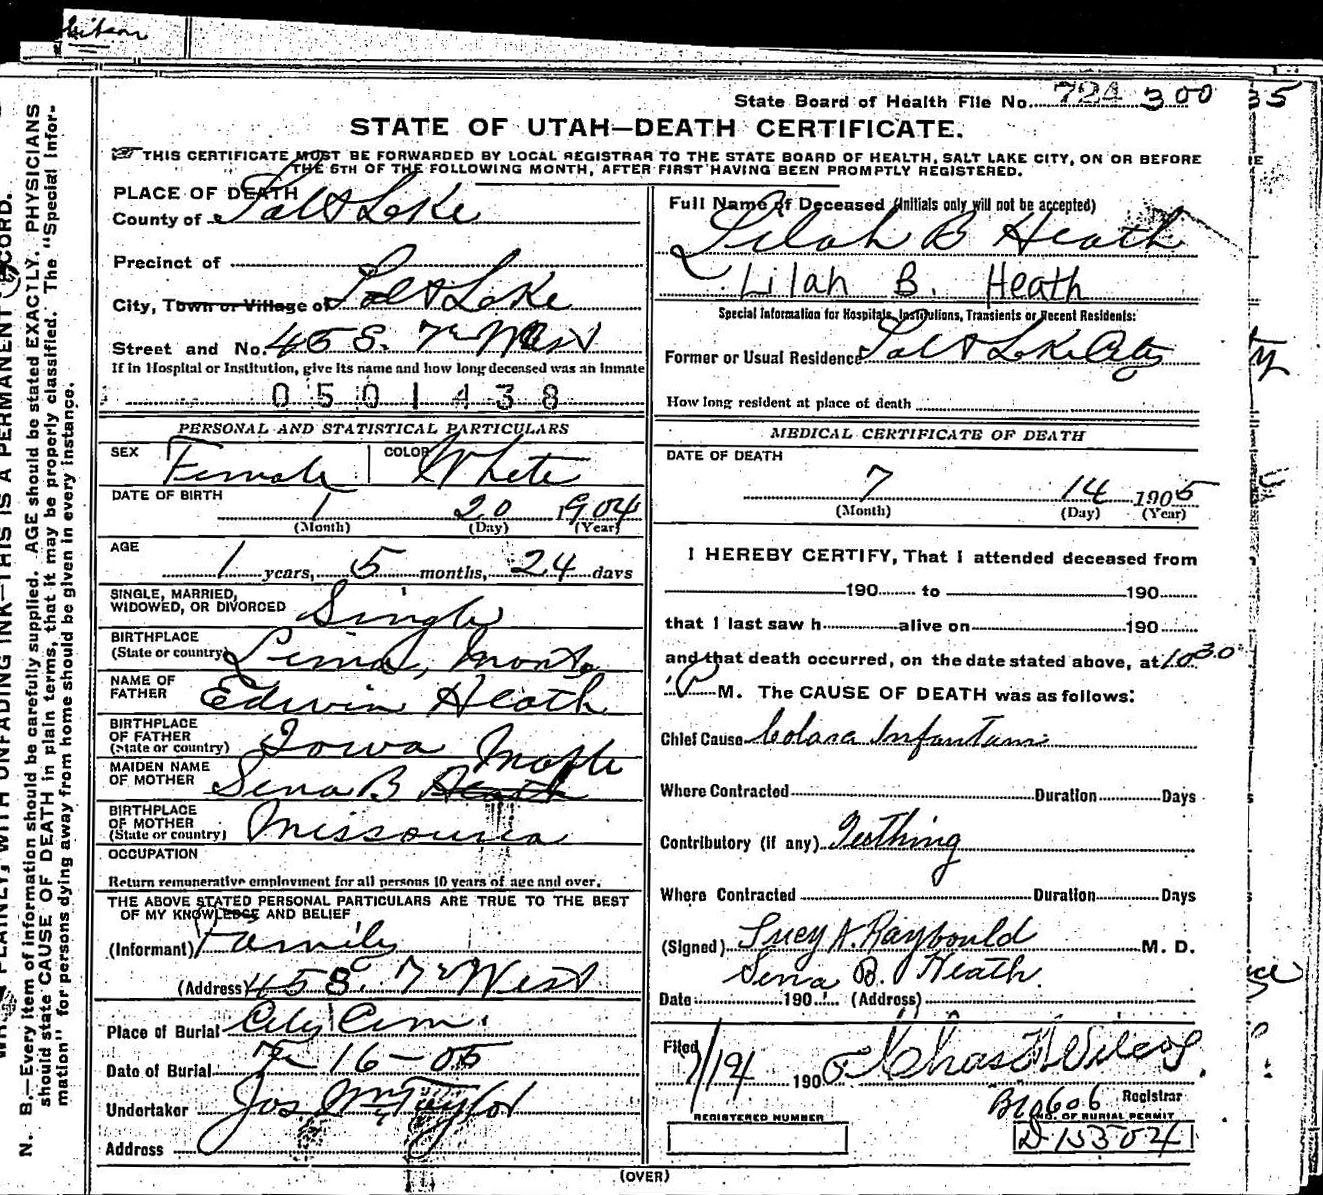 State Board of Health File No. 724 300
35
STATE OF UTAH—DEATH CERTIFICATE.
THIS CERTIFICATE MUST BE FORWARDED BY LOCAL REGISTRAR TO THE STATE BOARD OF HEALTH, SALT LAKE CITY, ON OR BEFORE
THE 5TH OF THE FOLLOWING MONTH, AFTER FIRST HAVING BEEN PROMPTLY REGISTERED.
PLACE OF DEATH
County of Salt Lake
Precinct of
City, Town or Village of Salt Lake
Street and No. 45 S. 7th West
If in Hospital or Institution, give its name and how long deceased was an inmate
0501438
PERSONAL AND STATISTICAL PARTICULARS
SEX Female COLOR White
DATE OF BIRTH 1 20 1904
(Month) (Day) (Year)
AGE
1 years, 5 months, 24 days
SINGLE, MARRIED,
WIDOWED, OR DIVORCED Single
BIRTHPLACE
(State or country) Lima, Monta
NAME OF
FATHER Edwin Heath
BIRTHPLACE
OF FATHER
(State or country) Iowa
MAIDEN NAME
OF MOTHER Sena B Heath
BIRTHPLACE
OF MOTHER
(State or country) Missouria
OCCUPATION
Return remunerative employment for all persons 10 years of age and over.
THE ABOVE STATED PERSONAL PARTICULARS ARE TRUE TO THE BEST
OF MY KNOWLEDGE AND BELIEF
(Informant) Family
(Address) 45 S. 7th West
Place of Burial City Cem.
Date of Burial 7-16-05
Undertaker Jos Wm Taylor
Address
Full Name of Deceased (Initials only will not be accepted)
Lilah B Heath
Lilah B. Heath
Special Information for Hospitals, Institutions, Transients or Recent Residents:
Former or Usual Residence Salt Lake City
How long resident at place of death
MEDICAL CERTIFICATE OF DEATH
DATE OF DEATH
7 14 1905
(Month) (Day) (Year)
I HEREBY CERTIFY, That I attended deceased from
190 to 190
that I last saw h alive on 190
and that death occurred, on the date stated above, at 10 30
P M. The CAUSE OF DEATH was as follows:
Chief Cause Colara Infantum
Where Contracted Duration Days
Contributory (if any) Teething
Where Contracted Duration Days
(Signed) Lucy A. Raybould M. D.
Sena B. Heath.
Date 190 (Address)
Filed 7/14 1905 Chas Wilcox
Registrar
B10606
REGISTERED NUMBER
NO. OF BURIAL PERMIT
D-15304
(OVER)
PLAINLY, WITH UNFADING INK—THIS IS A PERMANENT RECORD.
N. B.—Every item of information should be carefully supplied. AGE should be stated EXACTLY. PHYSICIANS
should state CAUSE OF DEATH in plain terms, that it may be properly classified. The "Special Infor-
mation" for persons dying away from home should be given in every instance.